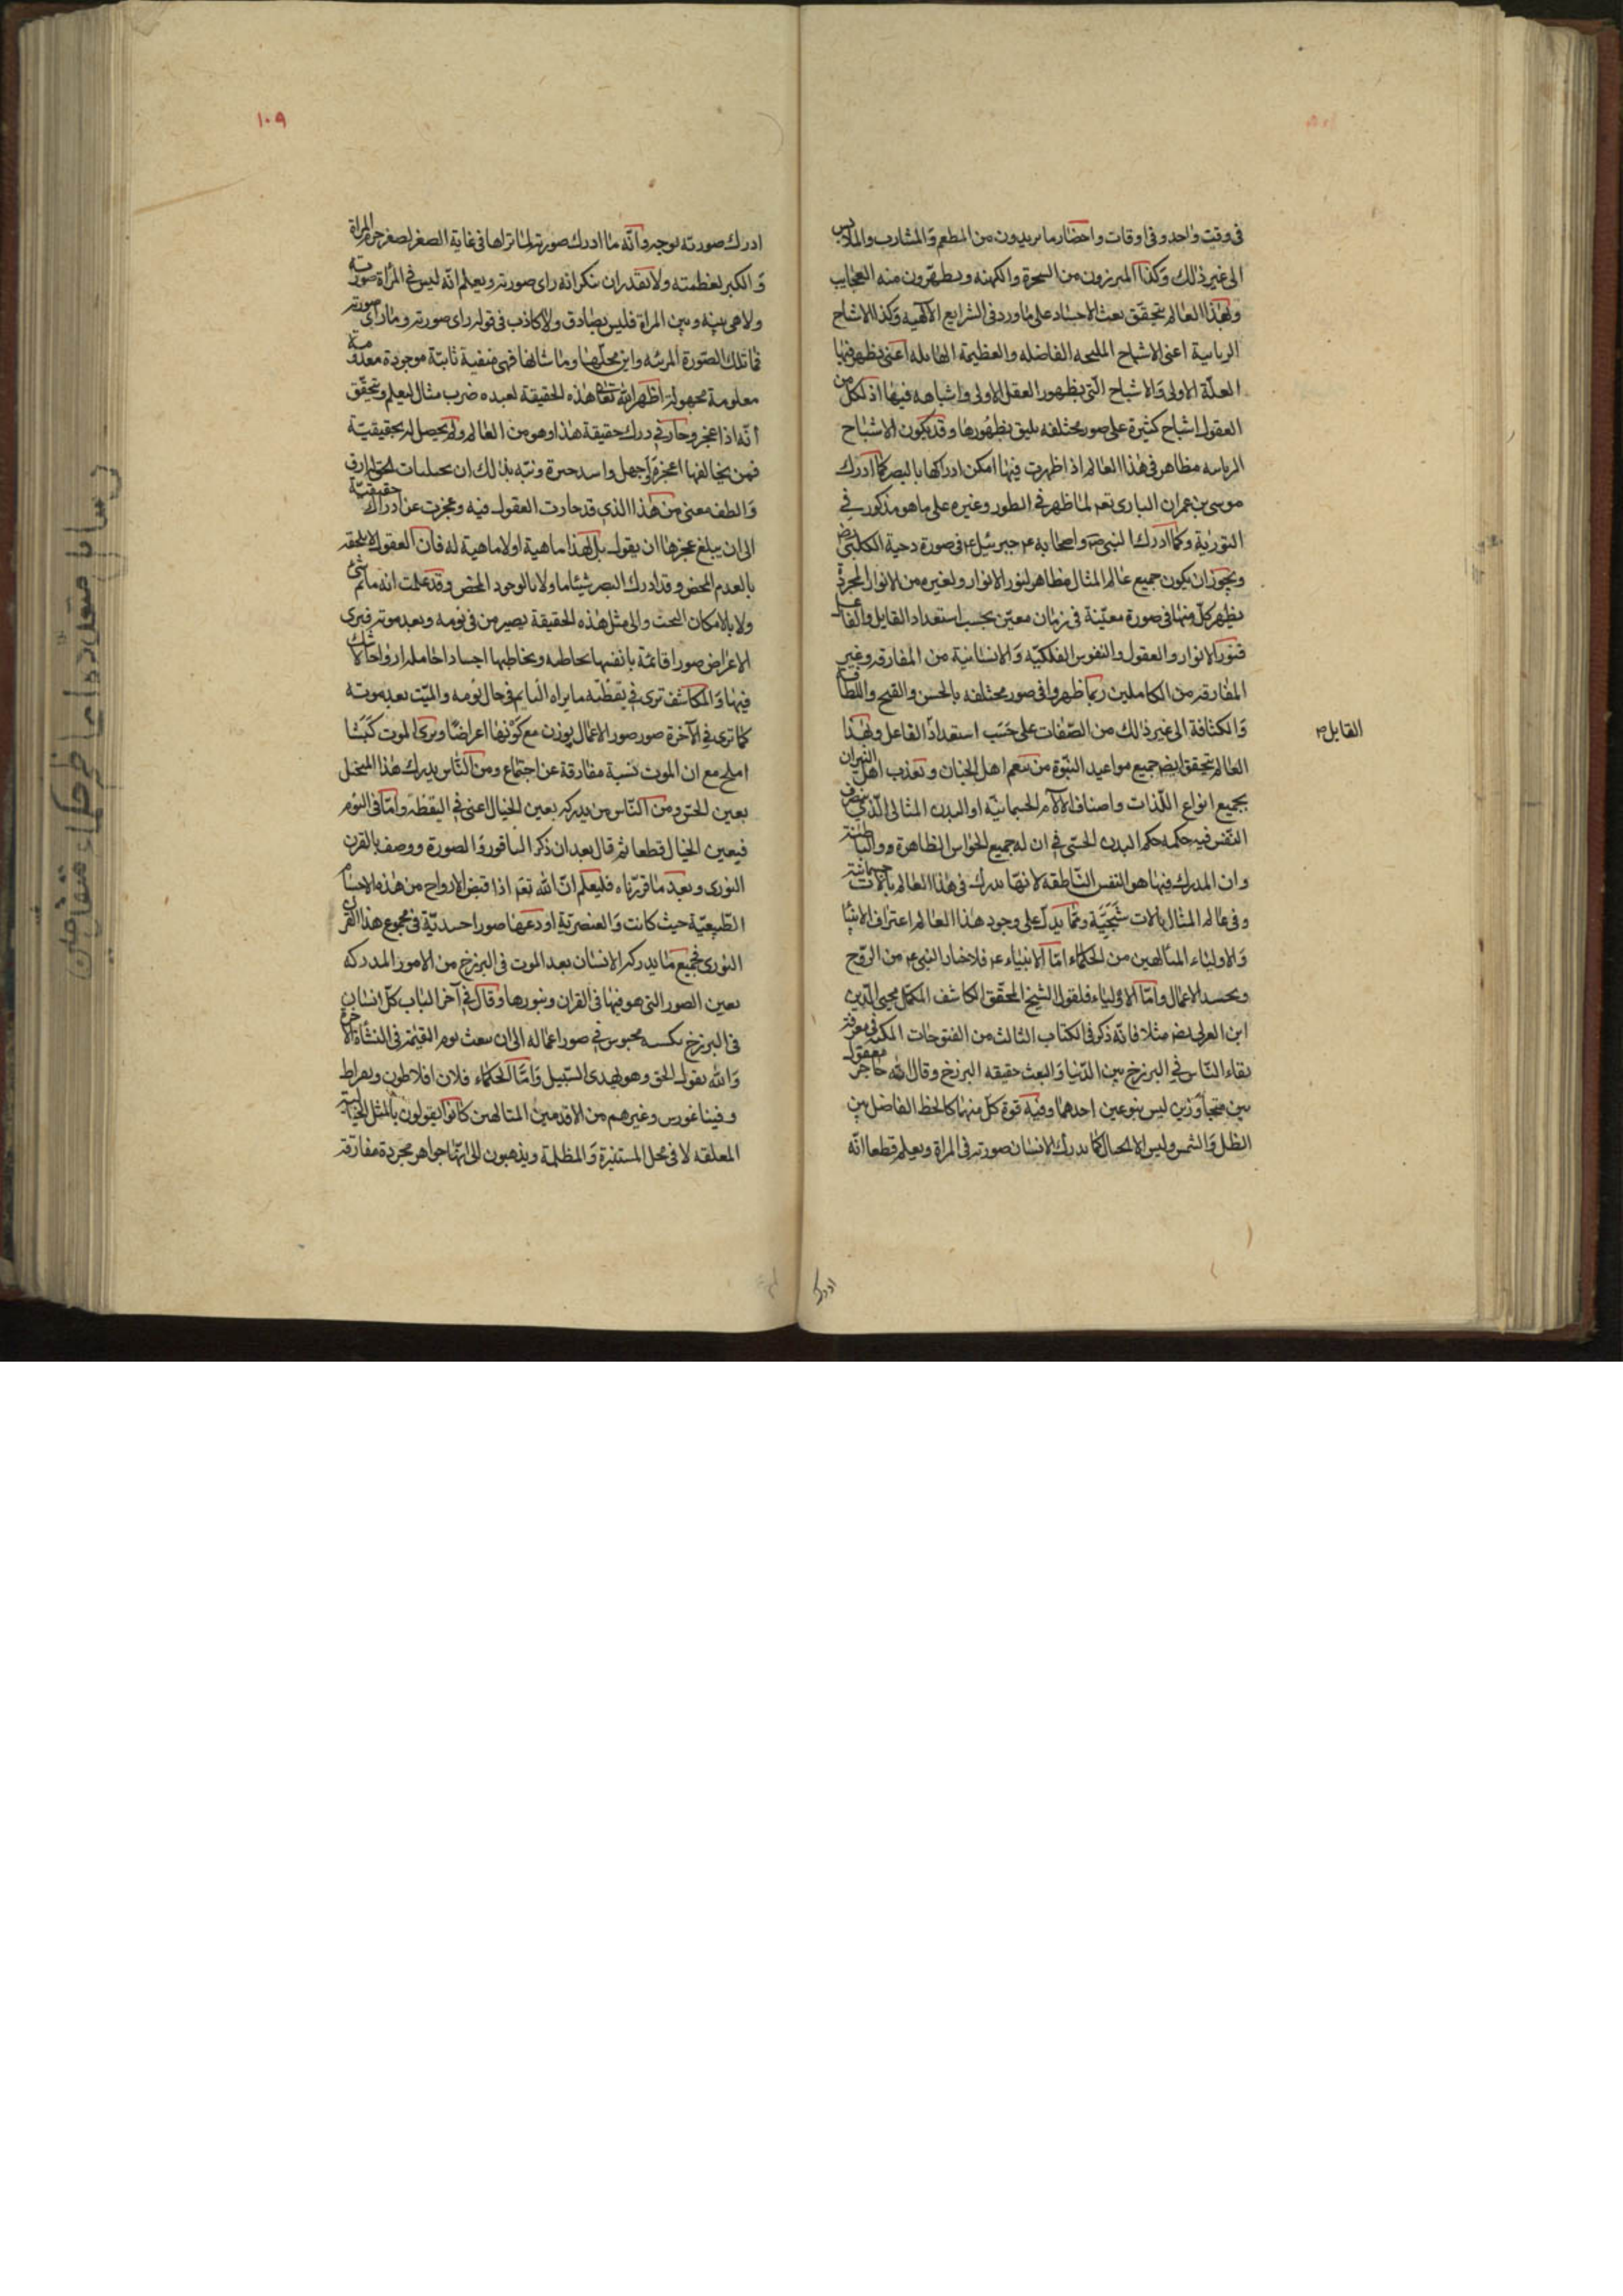 فى وقت واحد و فى اوقات واحضار ما يريدون من المطعم والمشارب والملابس
الى غير ذلك وكذا المبرزون من السحرة والكهنه ويظهرون منه العجايب
وبهذا العالم يتحقق بعث الاجساد على ما ورد فى الشرايع الآلهيه وكذا الاشباح
الربانية اعنى الاشباح المليحه الفاضله والعظيمة الهايله اعنى يظهر فيها
العلّة الاولى والاشباح الّتى بظهور العقل الاولى واشباهه فيها اذ لكل من
العقول اشباح كثيرة على صور مختلفه يليق بظهورها وقد يكون الاشباح
الربانيه مظاهر فى هذا العالم اذ اظهرت فيها امكن ادراكها بالبصر كما ادرك
موسى بن عمران البارى تعم لما ظهر فى الطور وغيره على ما هو مذكور في
التورية وكما ادرك النبى ص واصحابه جبرئيل ع فى صورة دحية الكلبى رض
ويجوز ان يكون جميع عالم المثال مظاهر لنور الانوار ولغيره من الانوار المجردة
يظهر كلّ منها فى صورة معيّنة فى زمان معيّن بحسب استعداد القابل والفاعل
فنور الانوار والعقول والنفوس الفلكيّه والانسانية من المفارقه وغير
المفارقه من الكاملين ربما ظهروا فى صور مختلفه بالحسن والقبح واللطافة
والكثافة الى غير ذلك من الصّفات على حسب استعداد الفاعل وبهذا
القابل
العالم يتحقق ايضا جميع مواعيد النبّوة من تنعم اهل الجنان وتعذب اهل النيران
بجميع انواع اللّذات واصناف الآلام الجسمانيّه او البدن المثالى الّذى يتصرف
النفس فيه حكمه حكم البدن الحسّى فى ان له جميع الحواس الظاهرة و والباطنة
وان المدرك فيها هو النفس النّاطقه لانها تدرك فى هذا العالم بآلات جسمانية
وفى عالم المثال بآلات شَبَحيّة وممّا يدلّ على وجود هذا العالم اعتراف الانبيا
والاولياء المتالهين من الحكماء امّا الانبياء ع فلاخبار النبى ع من الرّوح
وتجسد الاعمال وامّا الاولياء فلقول الشيخ المحقّق الكاشف المكمّل محيى الدّين
ابن العربى رض مثلا فانّه ذكر فى الكتاب الثالث من الفتوحات المكيه فى معرفة
بقاء النّاس فى البرزخ بين الدّنيا والبعث حقيقه البرزخ وقال انه حاجز معقول
بين متجاوزين ليس بنوعين احدهما وفيه قوة كلّ منهما كالخط الفاصل بين
الظل والشمس وليس الا الخيال كما يدرك الانسان صورته فى المراة ويعلم قطعا انّه
ادرك
١٠٩
ادرك صورته بوجه وانّه ما ادرك صورته لما تراها فى غاية الصغر لصغر جرم المراة
والكبر لعظمته ولا يقدر ان ينكر انه راى صورته ويعلم انّه ليس فى المرأة صورته
ولا هى بينه وبين المراة فليس بصادق ولا كاذب فى قوله راى صورته وما راى صورته
فما تلك الصّورة المرئيه واين محلّها وما شانها فهى منفية ثابتة موجودة معدومة
معلومة مجهولة اظهر الله تعالى هذه الحقيقة لعبده ضرب مثال ليعلم ويتحقّق
انّه اذا عجز وحار فى درك حقيقة هذا وهو من العالم ولم يحصل له بحقيقيّة
فمن يخالفها اعجز واجهل واسد حيرة ونبّه بذلك ان تجليات الحق ارق
والطف معنى من هذا الذى قد حارت العقول فيه وعجزت عن ادراك حقيقيّة
الى ان يبلغ عجزها ان يقول بل لهذا ماهية او لا ماهية له فان العقول لا يلحقه
بالعدم المحض وقد ادرك البصر شيئا ما ولا بالوجود المحض وقد علمت انه ما ثم شئ
ولا بالامكان البحت والى مثل هذه الحقيقة يصير من فى نومه وبعد موته فيرى
الاعراض صورا قائمة بانفسها تخاطبه ويخاطبها اجسادا حاملة ارواحا لا شك
فيها والمكاشف ترى فى يقظته ما يراه النايم فى حال نومه والميّت بعد موته
كما ترى فى الآخرة صور صور الاعمال يوزن مع كونها اعراضا ويرى الموت كبشا
املح مع ان الموت نسبة مفارقة عن اجتماع ومن النّاس يدرك هذا المتخيل
بعين الحق ومن النّاس من يدركه بعين الخيال اعنى فى اليقظة وامّا فى النوم
فبعين الخيال قطعا ثم قال بعد ان ذكر الناقور والصورة ووصف بالقرن
النورى وبعد ما قررناه فليعلم انّ الله تعم اذا قبض الارواح من هذه الاجسام
الطّبيعيّة حيث كانت والعنصريّة اودعها صورا جسديّة فى مجموع هذا القرن
النورى فجميع ما يدركه الانسان بعد الموت فى البرزخ من الامور المدركه
بعين الصور التى هو فيها فى القران وبنورها وقال فى آخر الباب كلّ انسان
فى البرزخ بكسبه محبوس فى صور اعماله الى ان يبعث يوم القيمة فى النشأة الاخرة
والله يقول الحق وهو يهدى السّبيل وامّا الحكماء فلان افلاطون وبقراط
وفيثاغورس وغيرهم من الاقدمين المتالهين كانوا يقولون بالمثل الخيالية
المعلقه لا فى محل المستنيرة والمظلمة ويذهبون الى انّها جواهر مجردة مفارقة